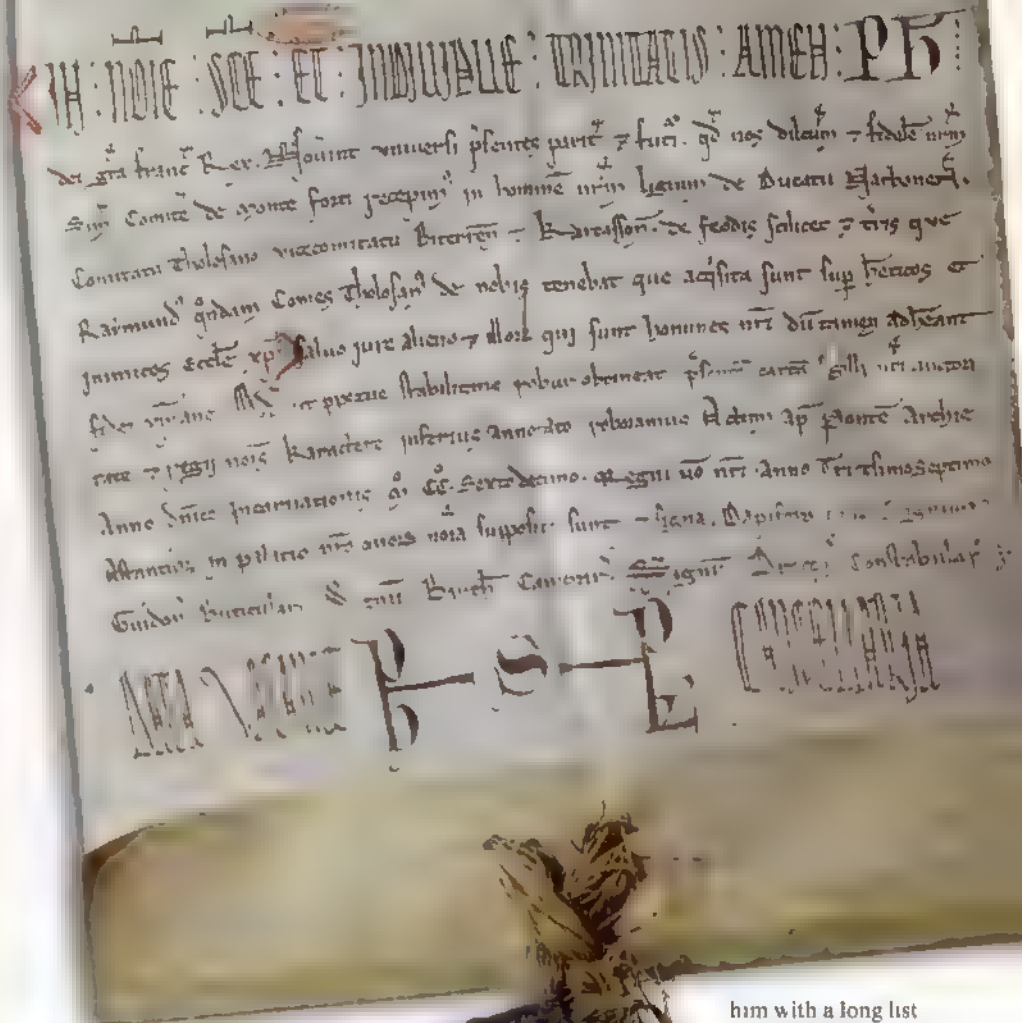 IN : NOIE : SCE : ET : INDIVIDUE : TRINITATIS : AMEN : PH
dei gra franc Rex. Noverint universi psentes parit ⁊ futi. qd nos dilcm ⁊ fidele nrm
Sim Comite de Monte forti recepim in homine nrm ligium de Ducatu Narbonen.
Comitatu Tholosano vicecomitatu Biterren ⁊ Karcasson. de feodis scilicet ⁊ tris que
Raimund qndam Comes Tholosan de nobis tenebat que acqsita sunt sup heticos et
inimicos Eccle xpi Salvo jure alieno ⁊ illor qui sunt homines nri dutamen adheant
fidei ut ppetue stabilitatis robur obtineat psente carta sigilli nri aucto
tate ⁊ regii nois Karactere inferius annotato roboramus Actum ap Ponte Archie
Anno dnice Incarnationis M CC. Sextodecimo. Regni vo nri. Anno Tricesimoseptimo
Astantib in palatio nro quor noia supposita sunt ⁊ signa. Dapifero
Guidon buticular S Barth Camerar Signu constabular
DATA VACANTE PH S PE CANCELLARIA
him with a long list